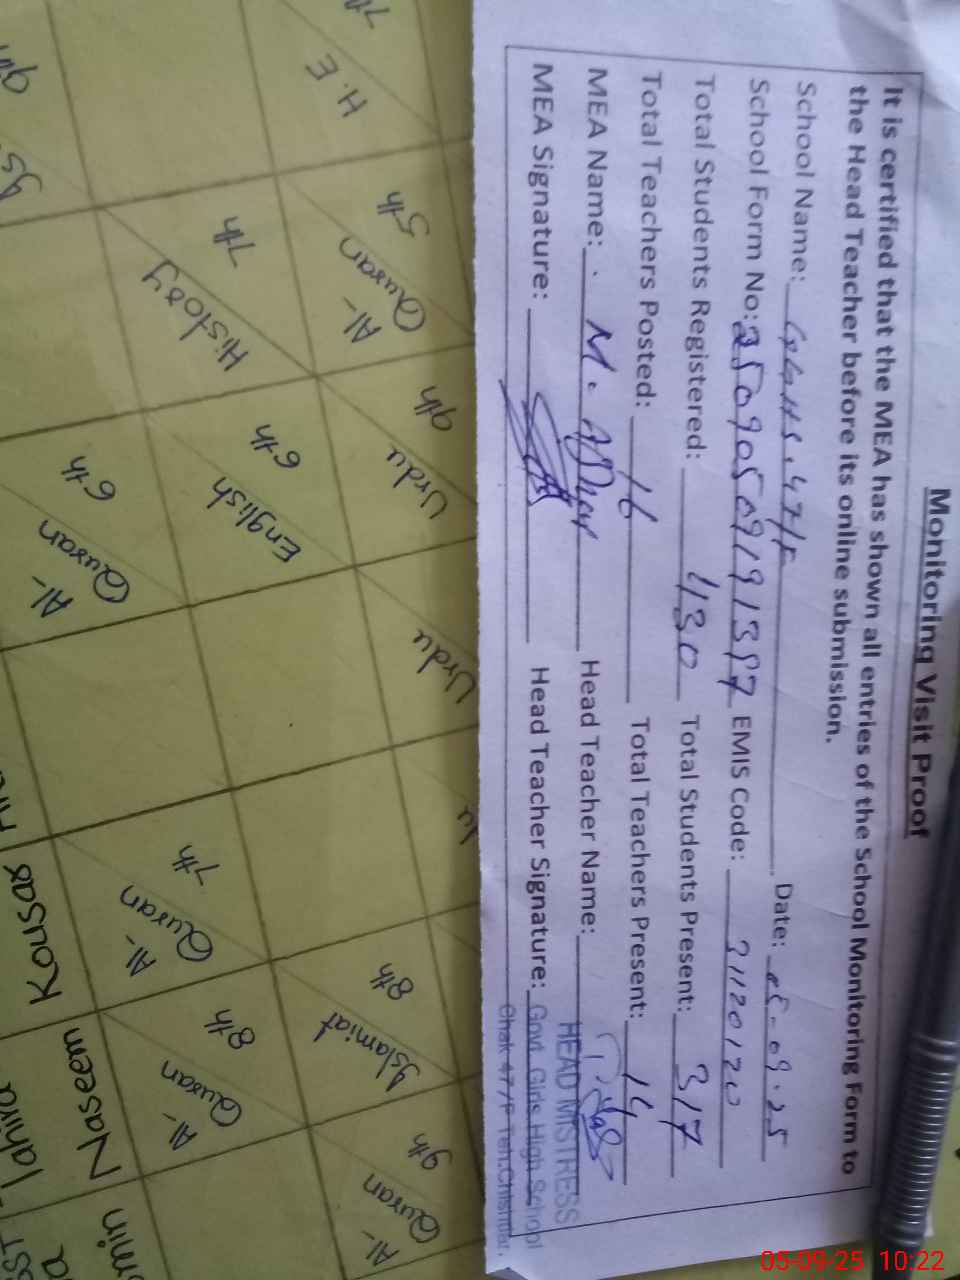 Monitoring Visit Proof
It is certified that the MEA has shown all entries of the School Monitoring Form to
the Head Teacher before its online submission.
School Name: GGHS. 47/F Date: 05-09-25
School Form No: EMIS Code: 31120120
Total Students Registered: 430 Total Students Present: 317
Total Teachers Posted: 16 Total Teachers Present: 14
MEA Name: M. Head Teacher Name:
MEA Signature: Head Teacher Signature:
HEAD MISTRESS
Govt. Girls High School
Chak 47/F Teh.Chishtian.
7th
H.E
5th
Al-
Quran
9th
Urdu
Urdu
8th
Islamiat
9th
Al-
Quran
7th
History
6th
English
7th
Al-
Quran
8th
Al-
Quran
6th
Al-
Quran
Kousar
Naseem
Tahira
SST
05-09-25 10:22